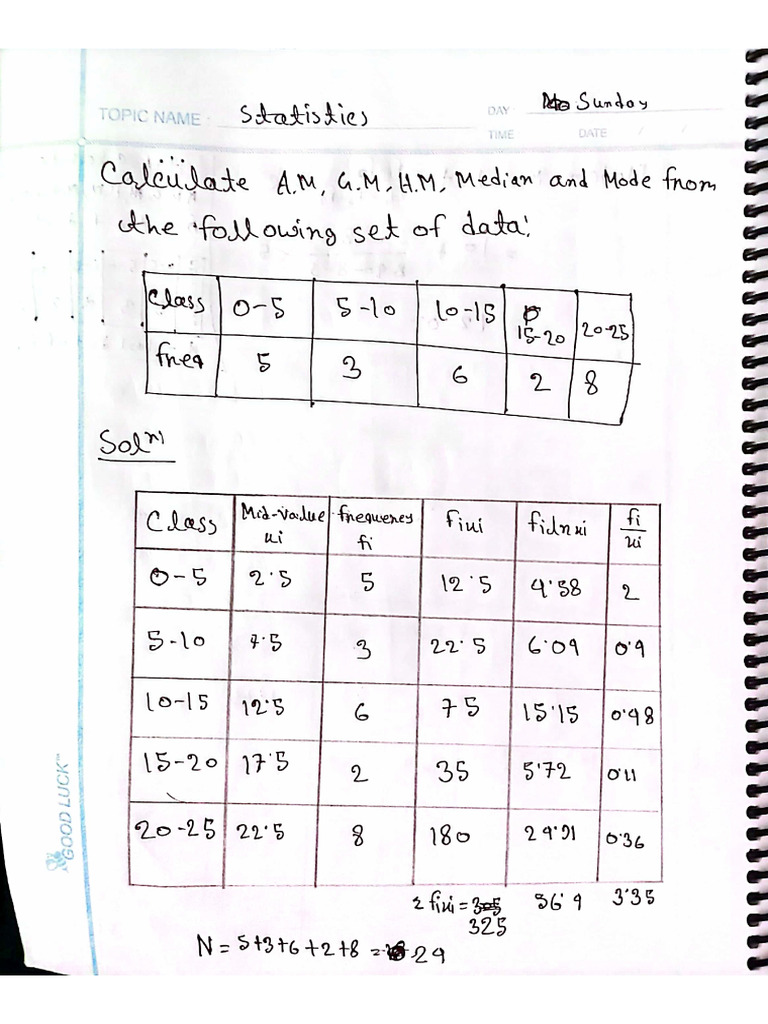 TOPIC NAME Statistics DAY Sunday
TIME DATE / /
Calculate A.M, G.M, H.M, Median and Mode from
the following set of data:
Class 0-5 5-10 10-15 15-20 20-25
freq 5 3 6 2 8
Solⁿ
Class Mid-value xi frequency fi fixi filnxi fi/xi
0-5 2.5 5 12.5 4.58 2
5-10 7.5 3 22.5 6.04 0.4
10-15 12.5 6 75 15.15 0.48
15-20 17.5 2 35 5.72 0.11
20-25 22.5 8 180 24.91 0.36
Σfixi = 325 56.4 3.35
N = 5+3+6+2+8 = 24
GOOD LUCK™